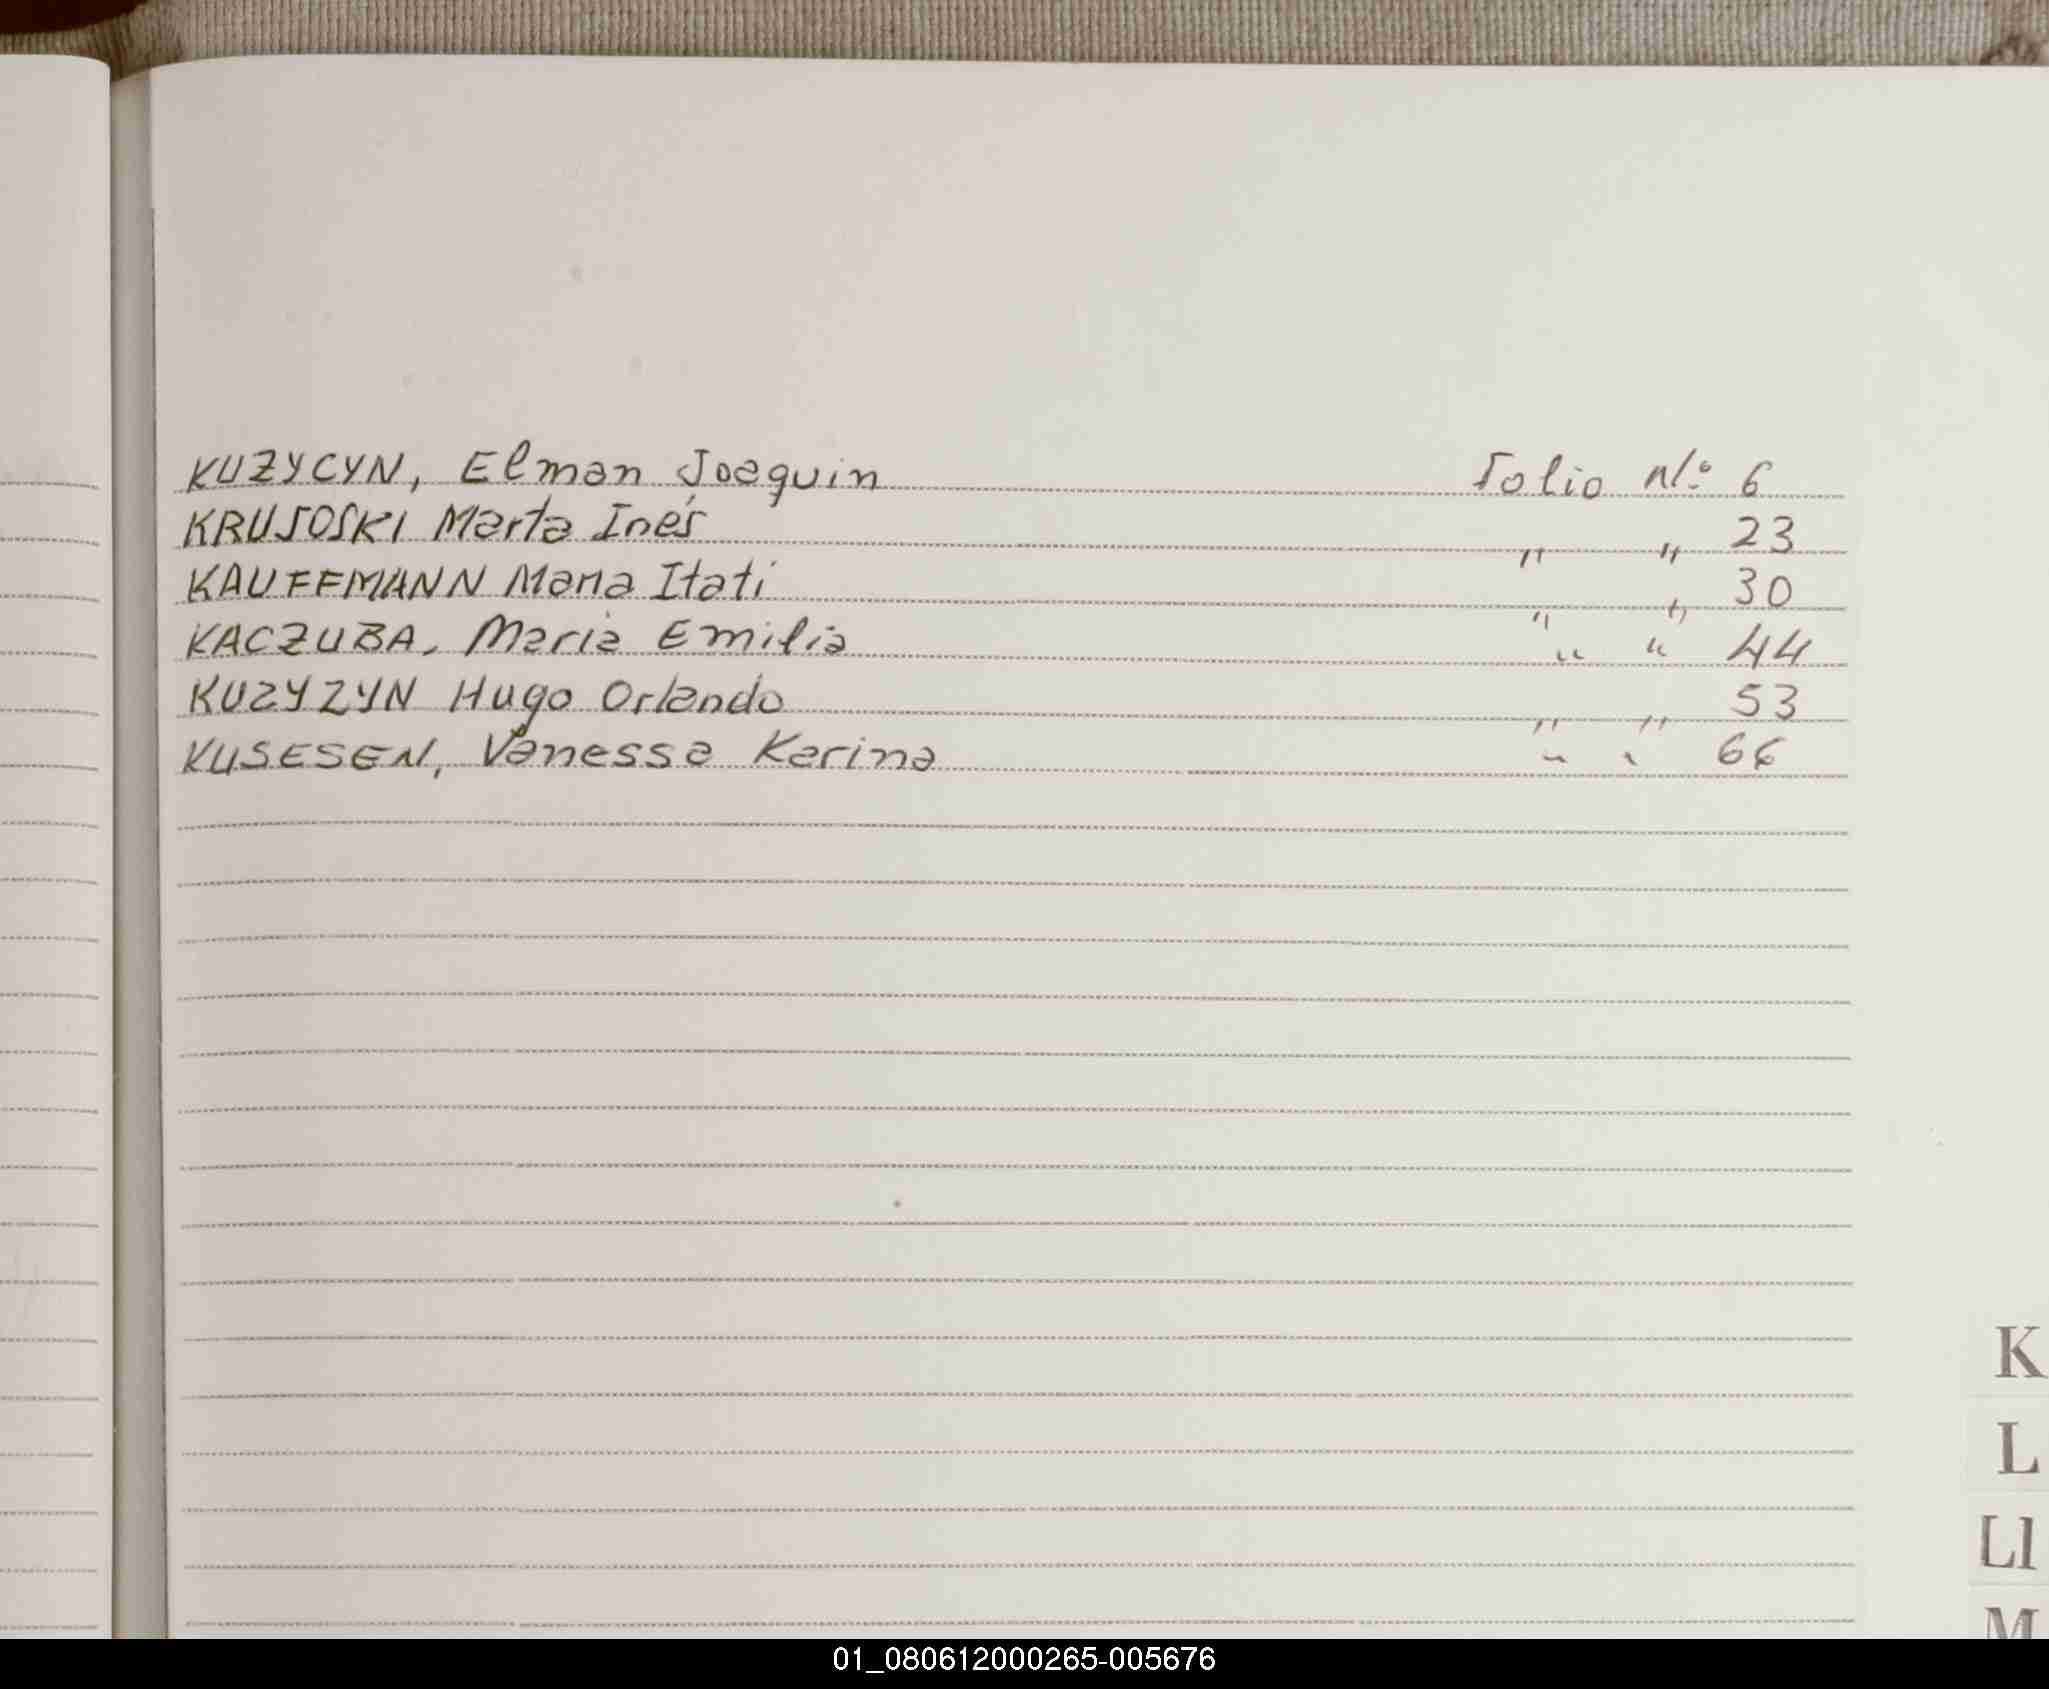 KUZYCYN, Elman Joaquin Folio Nº 6
KRUSOSKI Marta Inés " " 23
KAUFFMANN Maria Itati " " 30
KACZUBA, Maria Emilia " " 44
KUZYZYN Hugo Orlando " " 53
KUSESEN, Vanessa Karina " " 66
K
L
Ll
M
01_080612000265-005676